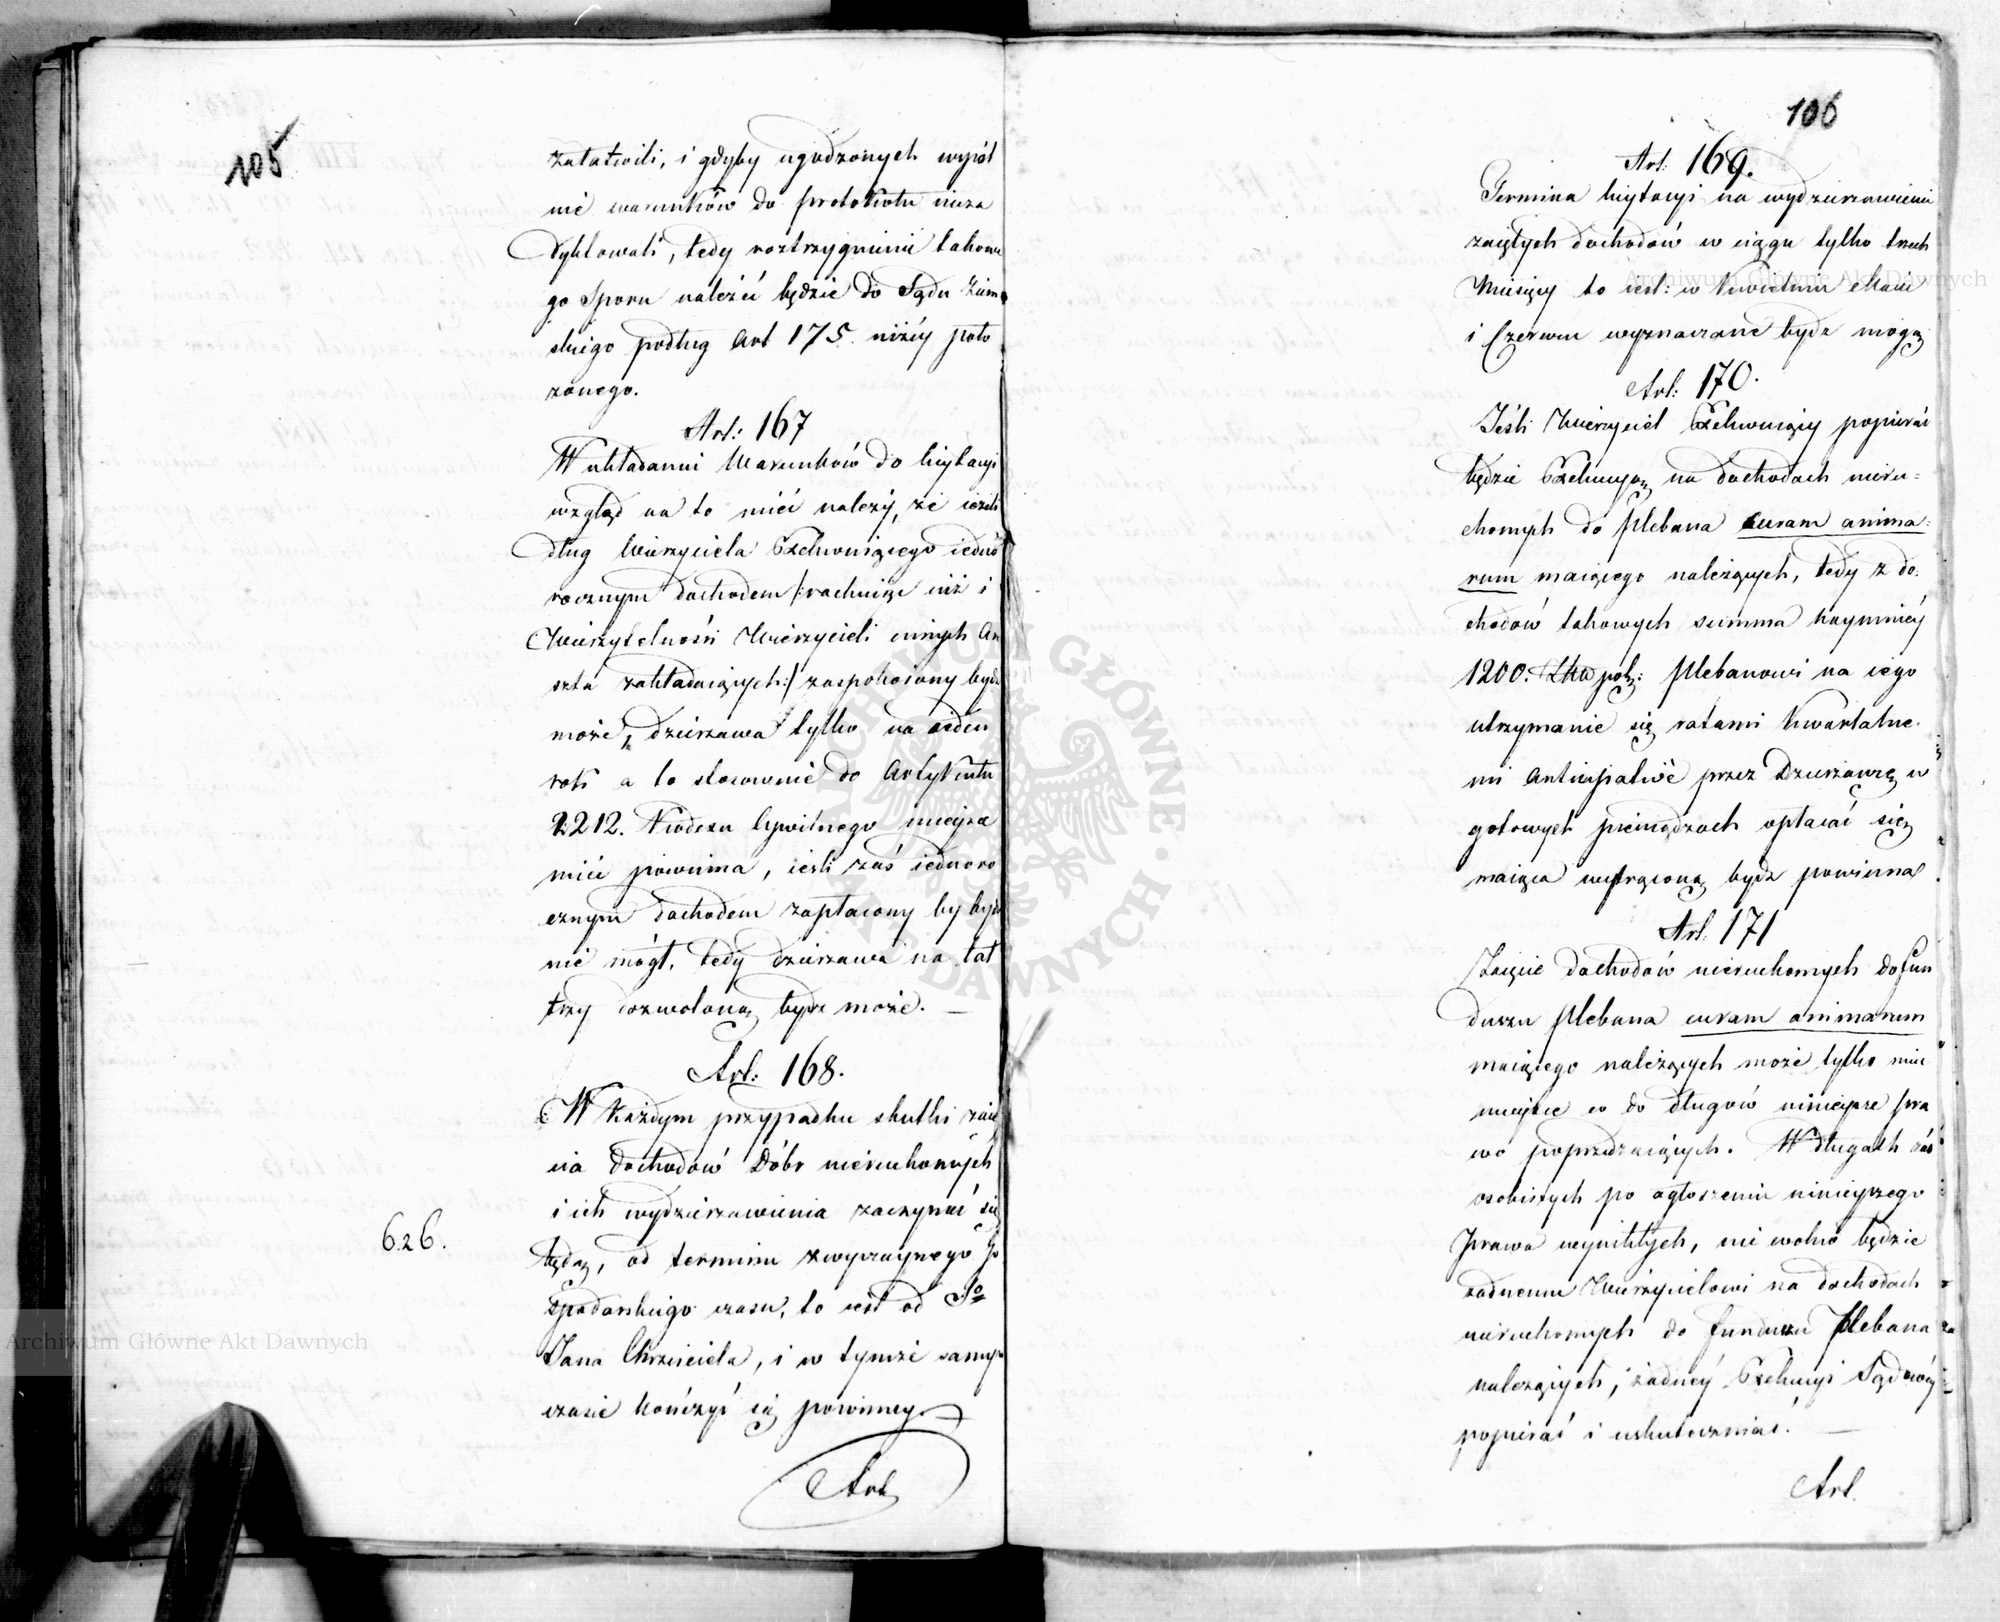 105
załatwili, i gdyby ugodzonych wspól
nie warunków do protokołu nieza
dyktowali, tedy roztrzygnienie takowe
go Sporu należéć będzie do Sądu Ziem
skiego podług Art 175. niżéy poło
żonego.
Art: 167
W układaniu Warunków do licytacyi
wzgląd na to mieć należy, że ieżeli
dług Wierzyciela Exekwuiącego iedno
rocznym dochodem /:rachuiąc iuż i
Wierzytelności Wierzycieli innych Are
szta zakładaiących:/ zaspokoiony bydź
może, dzierżawa tylko na ieden
rok a to stosownie do Artykułu
2212. Kodexu Cywilnego mieysce
mieć powinna, ieśli zaś iednoro
cznym dochodem zapłacony by bydź
nie mógł, tedy dzierżawa na lat
trzy dozwoloną bydź może. —
Art: 168.
W Każdym przypadku skutki zaię
cia dochodów Dóbr nieruchomych
i ich wydzierżawienia zaczynać się
626.
będą, od terminu zwyczaynego go
spodarskiego czasu, to iest od So
Jana Chrzciciela, i w tymże samym
czasie kończyć się powinny
Art
106
Art: 169.
Termina licytacyi na wydzierżawienie
zaiętych dochodów w ciągu tylko trzech
Miesięcy to iest: w Kwietniu Maiu
i Czerwcu wyznaczane bydź mogą
Art: 170.
Jeśli Wierzyciel Exekwuiący popierać
będzie Exekucyą na dochodach nieru=
chomych do Plebana curam anima:
rum maiącego należących, tedy z do:
chodów takowych summa naymniéy
1200. Złłt pol: Plebanowi na iego
utrzymanie się ratami kwartalne
mi anticipative przez Dzierżawcę w
gotowych pieniądzach opłacać się
maiąca wytrąconą bydź powinna
Art: 171
Zaięcie dochodów nieruchomych do fun
duszu Plebana curam animarum
maiącego należących może tylko mieć
mieysce co do długów ninieysze pra
wo poprzedzaiących. W długach zaś
osobistych po ogłoszeniu ninieyszego
Prawa wynikłych, nie wolno będzie
żadnemu Wierzycielowi na dochodach
nieruchomych do funduszu Plebana
należących, żadnéy Exekucyi Sądowéy
popierać i uskuteczniać. —
Art.
Archiwum Główne Akt Dawnych
Archiwum Główne Akt Dawnych
ARCHIWUM GŁÓWNE · AKT DAWNYCH ·